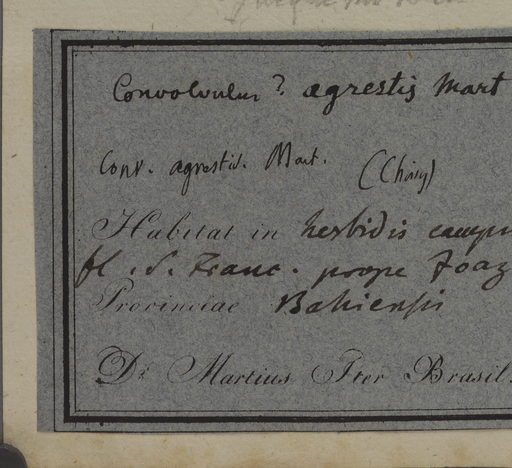 Convolvulus? agrestis Mart
Conv. agrestis. Mart. (Choisy)
Habitat in herbidis campis
fl. S. Franc. prope Joaz
Provinciae Bahiensis
Dr. Martius Iter Brasil.